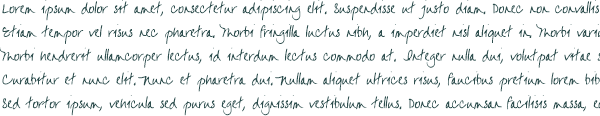 Lorem ipsum dolor sit amet, consectetur adipiscing elit. Suspendisse ut justo diam. Donec non convallis
Etiam tempor vel risus nec pharetra. Morbi fringilla luctus nibh, a imperdiet nisl aliquet in. Morbi vari
Morbi hendrerit ullamcorper lectus, id interdum lectus commodo at. Integer nulla dui, volutpat vitae
Curabitur et nunc elit. Nunc et pharetra dui. Nullam aliquet ultrices risus, faucibus pretium lorem bib
Sed tortor ipsum, vehicula sed purus eget, dignissim vestibulum tellus. Donec accumsan facilisis massa,